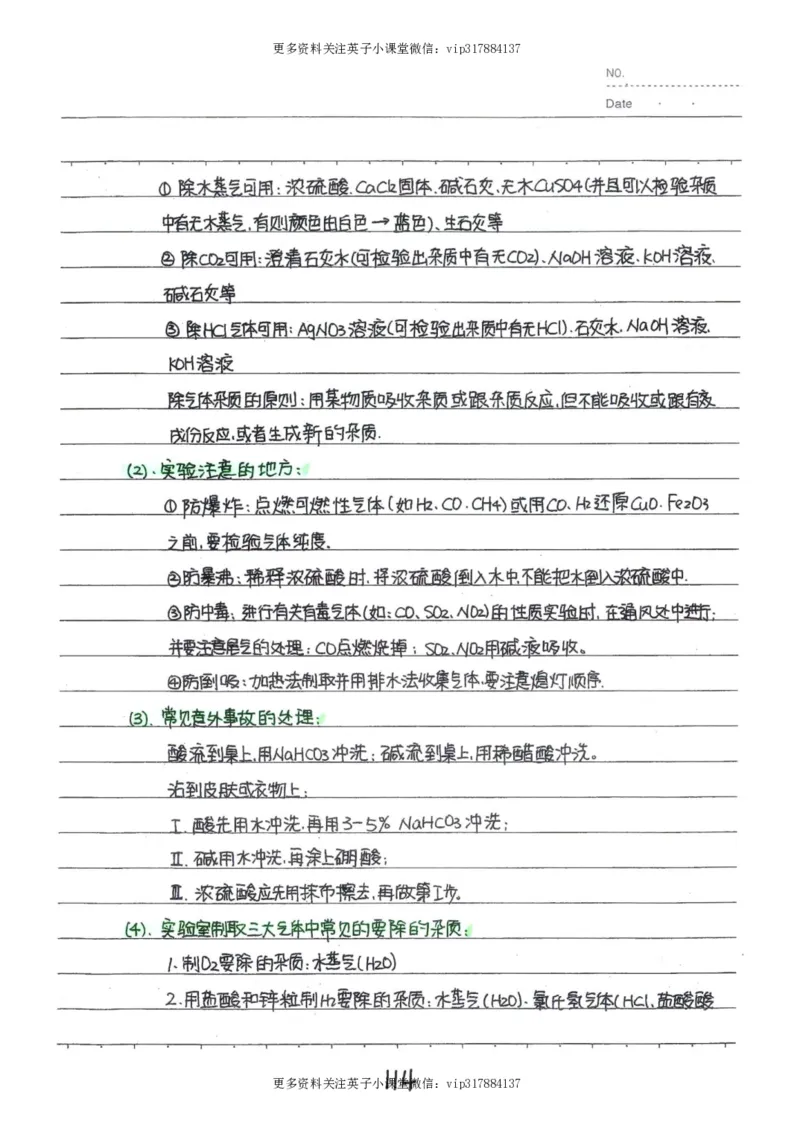 更多资料关注英子小课堂微信：vip317884137
NO.
Date
① 除水蒸气可用：浓硫酸、CaCl2固体、碱石灰、无水CuSO4(并且可以检验杂质
中有无水蒸气,有则颜色由白色→蓝色)、生石灰等
② 除CO2可用：澄清石灰水(可检验出杂质中有无CO2)、NaOH溶液、KOH溶液、
碱石灰等
③ 除HCl气体可用：AgNO3溶液(可检验出杂质中有无HCl)、石灰水、NaOH溶液、
KOH溶液
除气体杂质的原则：用某物质吸收杂质或跟杂质反应,但不能吸收或跟有效
成份反应,或者生成新的杂质.
(2)、实验注意的地方：
① 防爆炸：点燃可燃性气体(如H2、CO、CH4)或用CO、H2还原CuO、Fe2O3
之前,要检验气体纯度.
②防暴沸：稀释浓硫酸时,将浓硫酸倒入水中,不能把水倒入浓硫酸中.
③防中毒：进行有关有毒气体(如:CO、SO2、NO2)的性质实验时,在通风处中进行;
并要注意尾气的处理：CO点燃烧掉；SO2、NO2用碱液吸收。
④防倒吸：加热法制取并用排水法收集气体,要注意熄灯顺序.
(3)、常见意外事故的处理：
酸流到桌上,用NaHCO3冲洗；碱流到桌上,用稀醋酸冲洗。
沾到皮肤或衣物上：
Ⅰ. 酸先用水冲洗,再用3-5% NaHCO3冲洗;
Ⅱ. 碱用水冲洗,再涂上硼酸;
Ⅲ. 浓硫酸应先用抹布擦去,再做第Ⅰ步。
(4)、实验室制取三大气体中常见的要除的杂质：
1、制O2要除的杂质：水蒸气(H2O)
2、用盐酸和锌粒制H2要除的杂质：水蒸气(H2O)、氯化氢气体(HCl,盐酸酸
114
更多资料关注英子小课堂微信：vip317884137